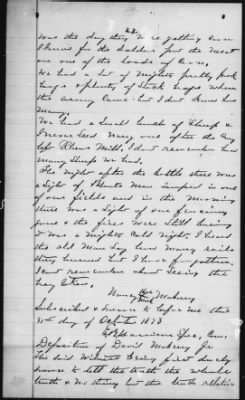 22
was the day they were getting corn
I know for the soldiers put the meat
on one of the loads of corn,
We had a lot of mighty pretty fork
hogs & plenty of stock hogs when
the army came but I dont know how
many
We had a small bunch of sheep &
I never seed nary one after the army
left Rheas Mill. I dont remember how
many sheep we had.
The night after the battle there was
a sight of Yankee men camped in one
of our fields and in the morning
there was a sight of our fencing
gone & the fires were still burning
it was a mighty cold night, I heard
the old man say how many rails
they burned but I have forgotten.
I cant remember about seeing the
hay taken.
Nancy her mark McCamy
Subscribed & sworn to before me this
day of October 1873
Spec, Com
Deposition of David McCamy Jr
The said witness being first duly
sworn to tell the truth the whole
truth & nothing but the truth relative